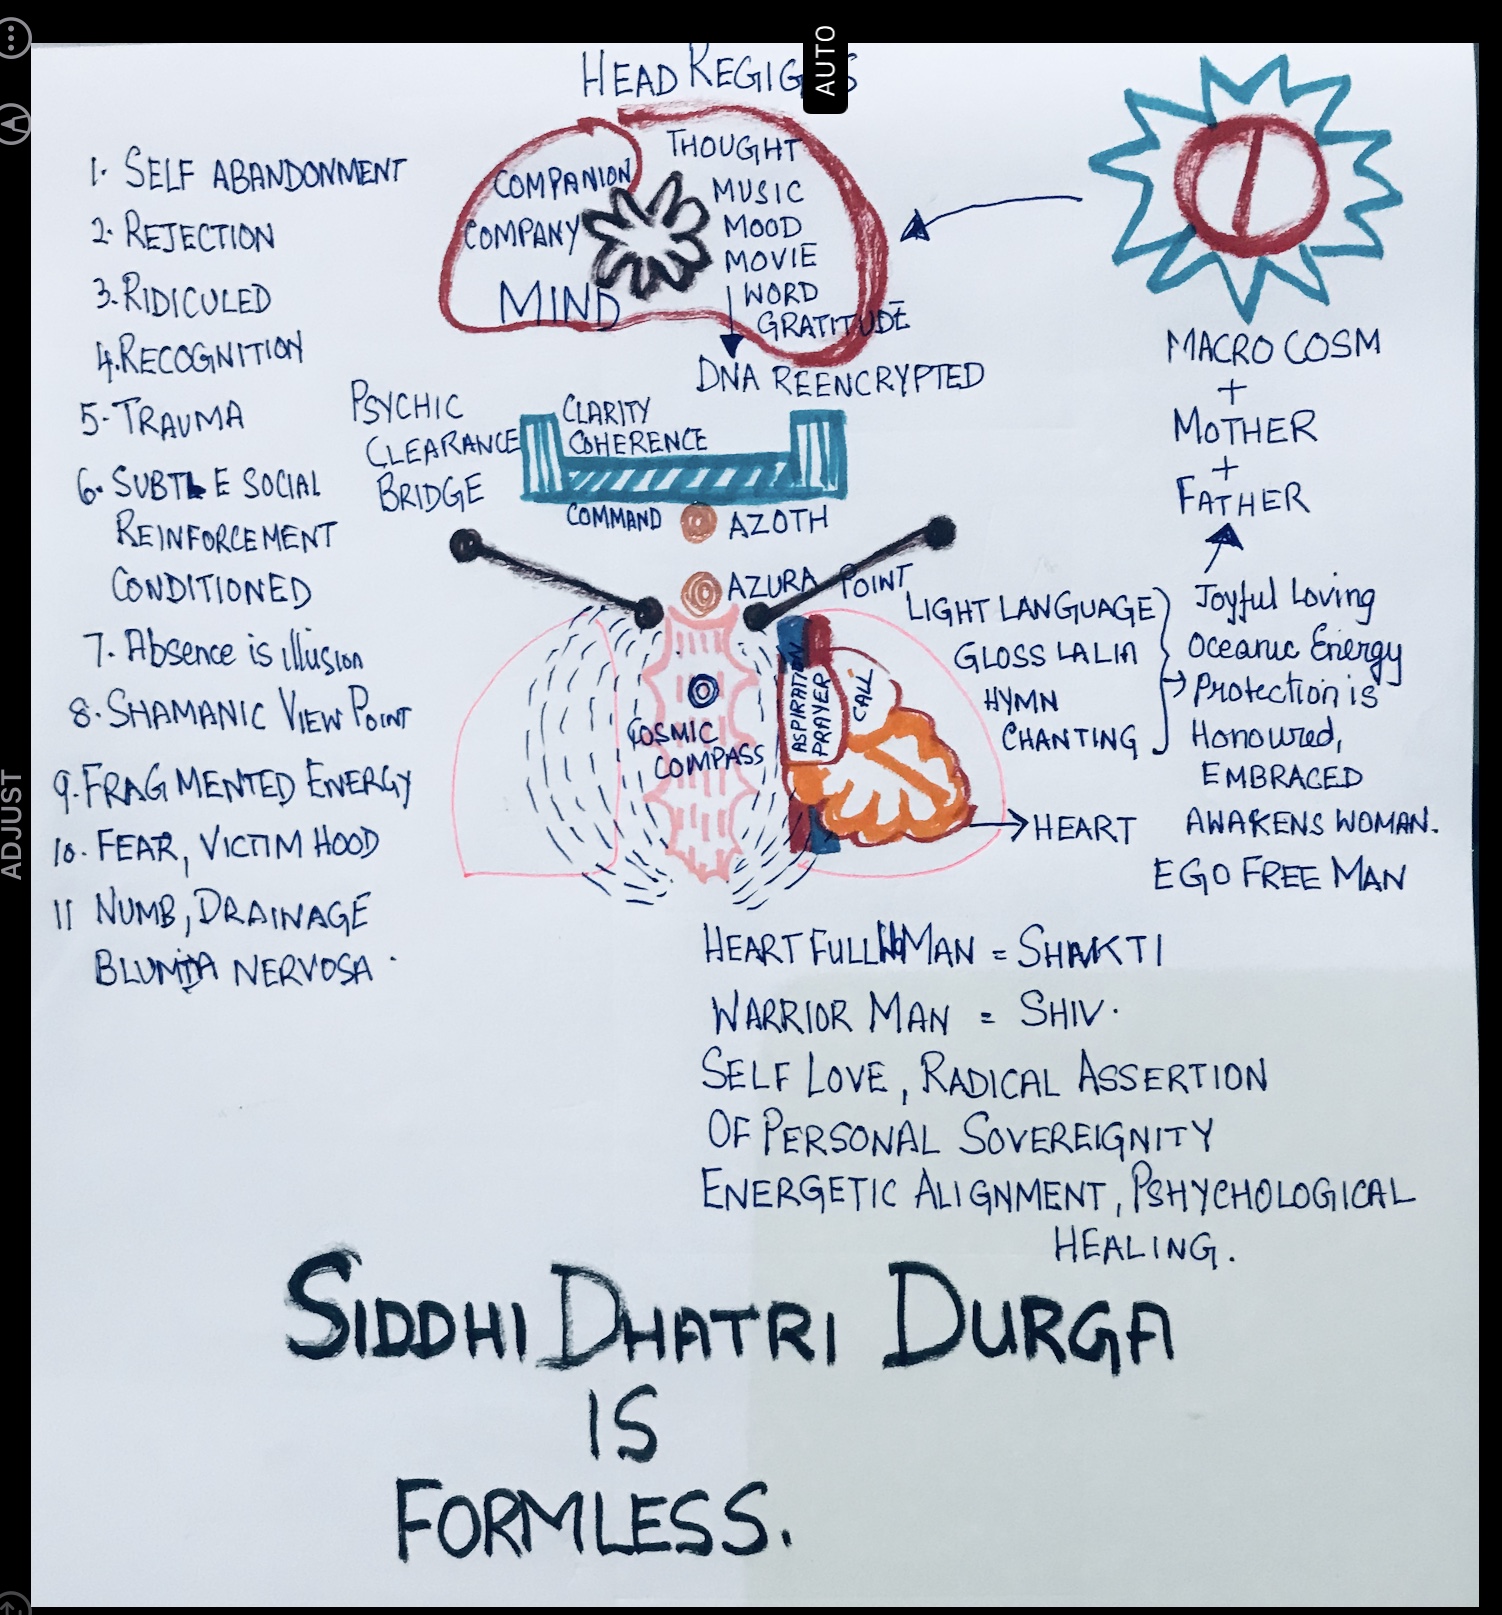 AUTO
ADJUST
HEAD
1. SELF ABANDONMENT
2. REJECTION
3. RIDICULED
4. RECOGNITION
5. TRAUMA
6. SUBTLE SOCIAL
REINFORCEMENT
CONDITIONED
7. Absence is illusion
8. SHAMANIC VIEW POINT
9. FRAGMENTED ENERGY
10. FEAR, VICTIM HOOD
11 NUMB, DRAINAGE
NERVOSA
COMPANION
COMPANY
MIND
THOUGHT
MUSIC
MOOD
MOVIE
WORD
GRATITUDE
DNA REENCRYPTED
PSYCHIC
CLEARANCE
BRIDGE
CLARITY
COHERENCE
COMMAND
AZOTH
AZURA POINT
COSMIC
COMPASS
ASPIRATION
PRAYER
CALL
HEART
MACRO COSM
+
MOTHER
+
FATHER
LIGHT LANGUAGE
GLOSS LALIA
HYMN
CHANTING
Joyful Loving
Oceanic Energy
Protection is
Honoured,
EMBRACED
AWAKENS WOMAN.
EGO FREE MAN
HEART FULL WOMAN = SHAKTI
WARRIOR MAN = SHIV.
SELF LOVE, RADICAL ASSERTION
OF PERSONAL SOVEREIGNITY
ENERGETIC ALIGNMENT, PSHYCHOLOGICAL
HEALING.
SIDDHI DHATRI DURGA
IS
FORMLESS.